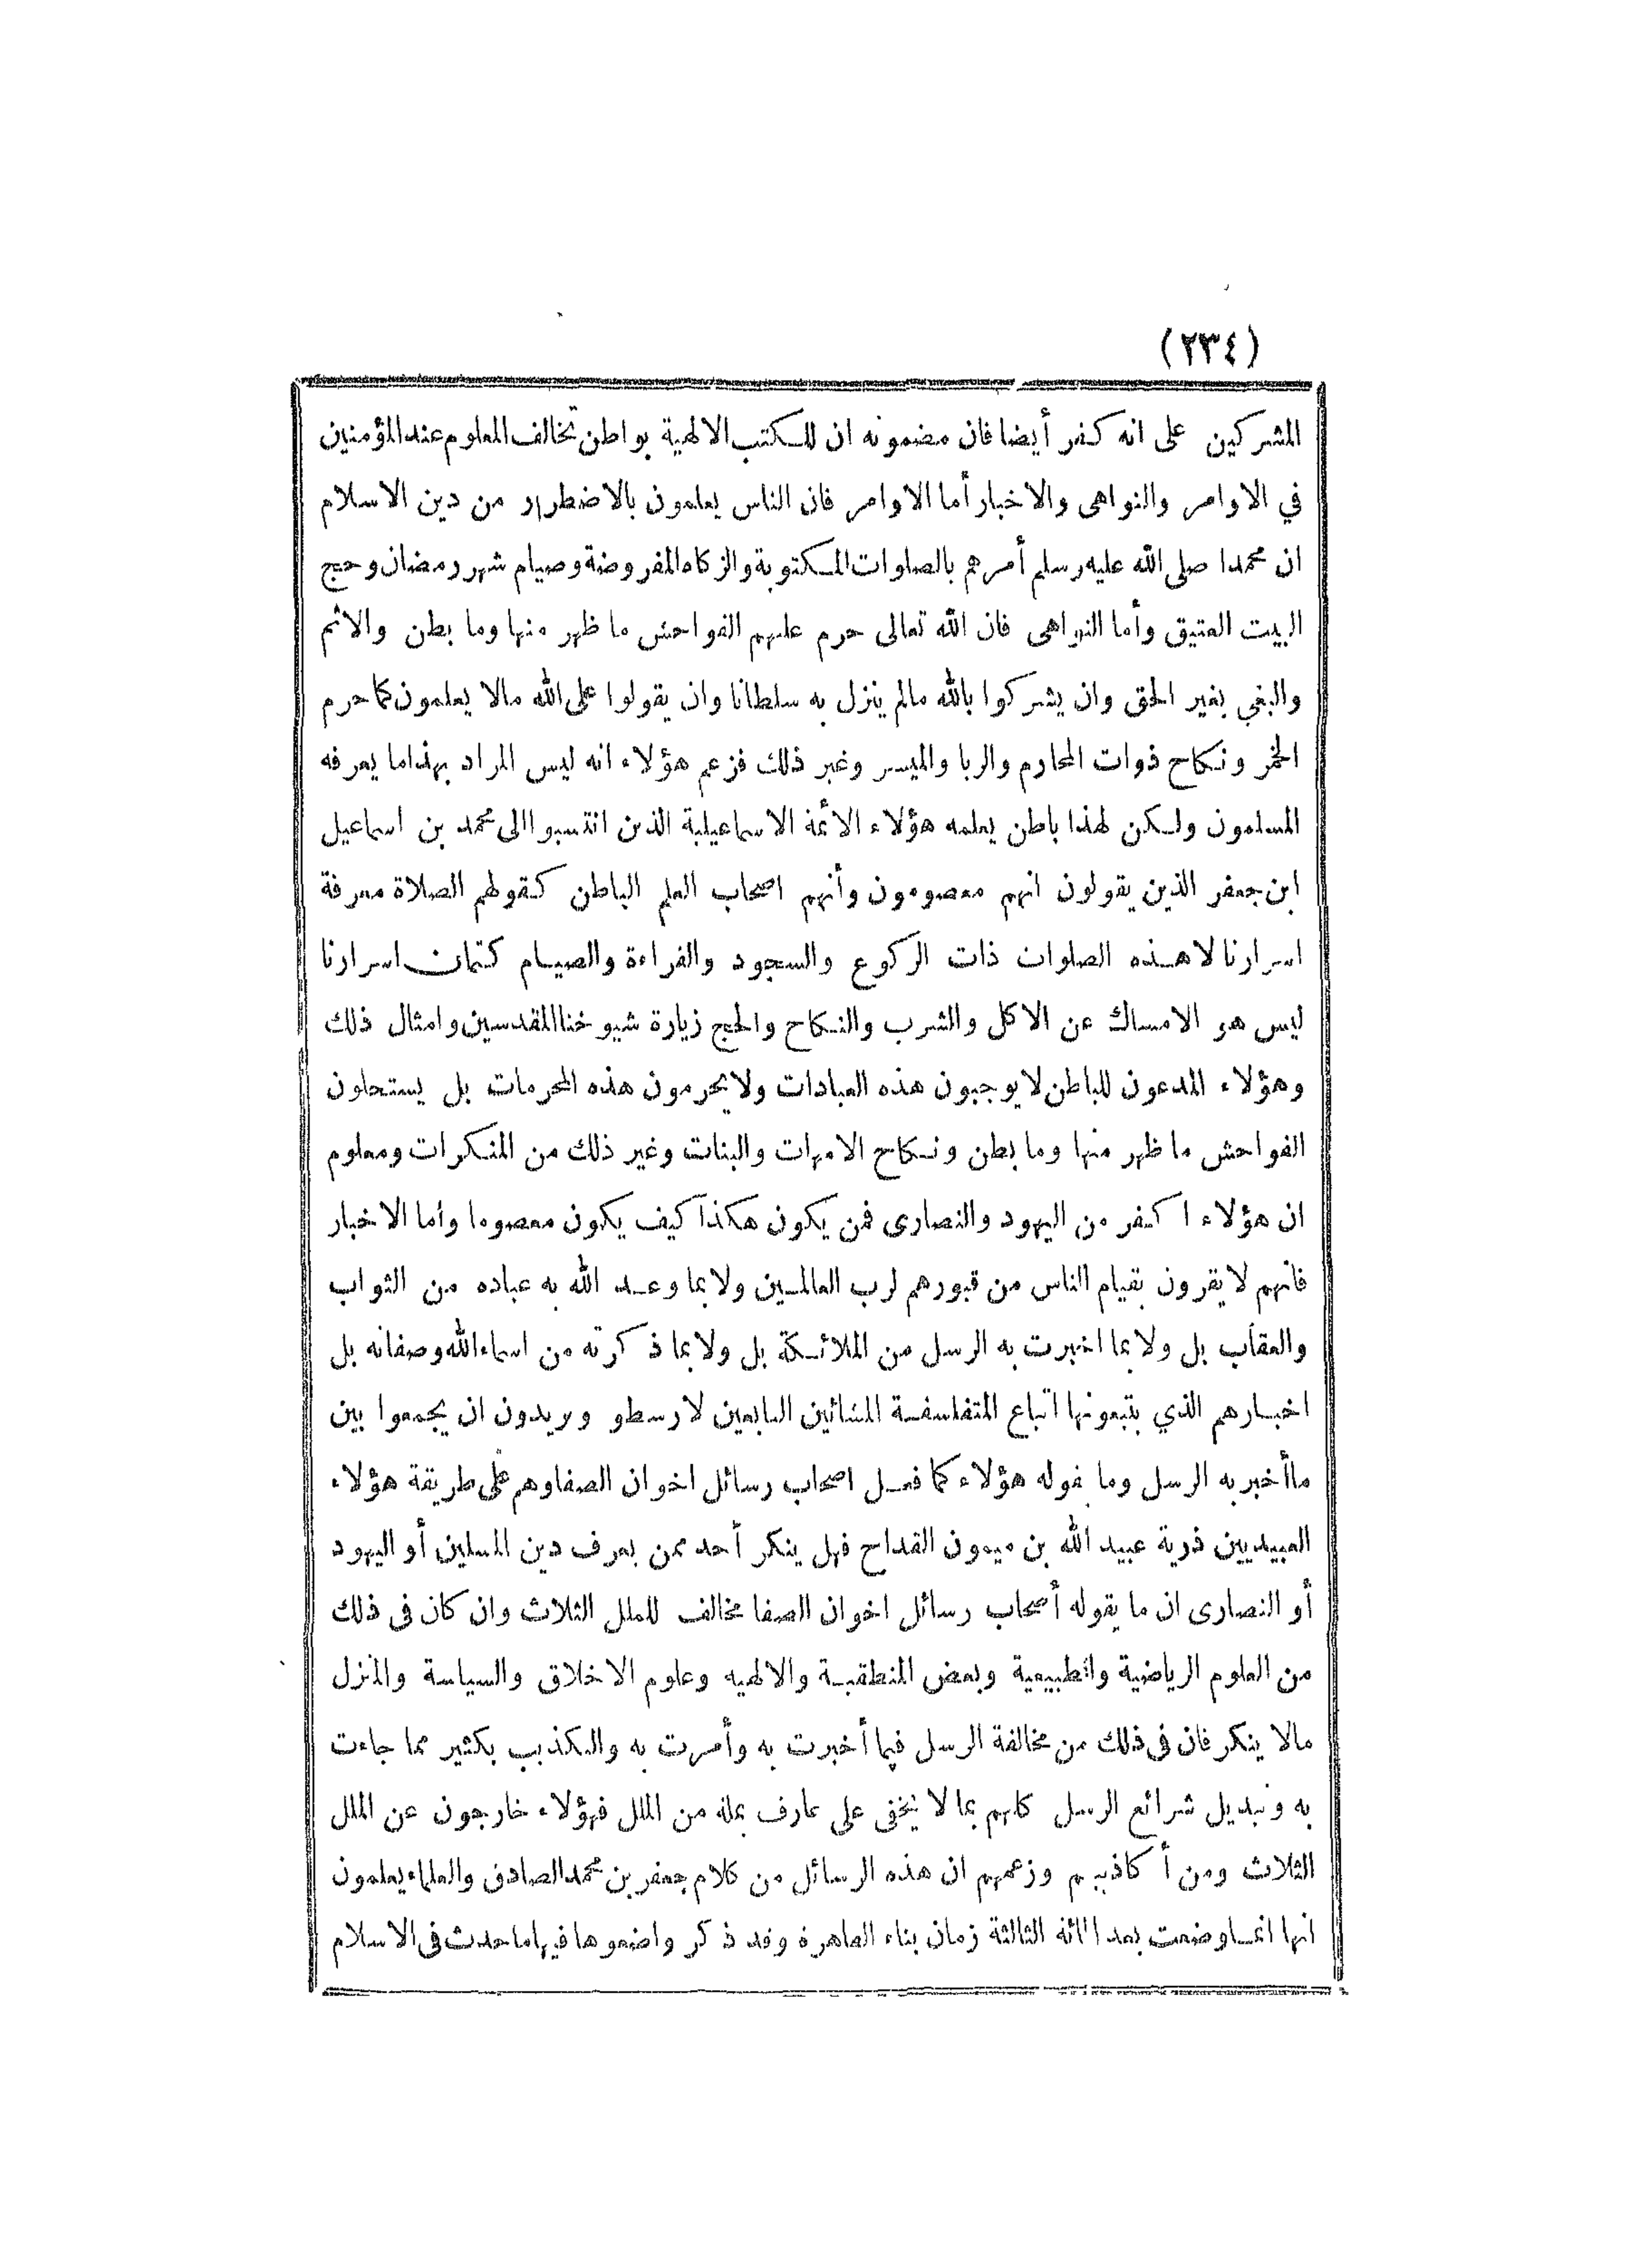 (٢٣٤)
المشركين على انه كفر أيضا فان مضمونه ان للكتب الالهية بواطن تخالف المعلوم عند المؤمنين
في الاوامر والنواهى والاخبار أما الاوامر فان الناس يعلمون بالاضطرار من دين الاسلام
ان محمدا صلى الله عليه وسلم أمرهم بالصلوات المكتوبة والزكاه المفروضة وصيام شهر رمضان وحج
البيت العتيق وأما النواهى فان الله تعالى حرم عليهم الفواحش ما ظهر منها وما بطن والاثم
والبغي بغير الحق وان يشركوا بالله مالم ينزل به سلطانا وان يقولوا على الله مالا يعلمون كما حرم
الخمر ونكاح ذوات المحارم والربا والميسر وغير ذلك فزعم هؤلاء انه ليس المراد بهذا ما يعرفه
المسلمون ولكن لهذا باطن يعلمه هؤلاء الأئمة الاسماعيلية الذين انتسبوا الى محمد بن اسماعيل
ابن جعفر الذين يقولون انهم معصومون وأنهم اصحاب العلم الباطن كقولهم الصلاة معرفة
اسرارنا لا هذه الصلوات ذات الركوع والسجود والقراءة والصيام كتمان اسرارنا
ليس هو الامساك عن الاكل والشرب والنكاح والحج زيارة شيوخنا المقدسين وامثال ذلك
وهؤلاء المدعون للباطن لا يوجبون هذه العبادات ولا يحرمون هذه المحرمات بل يستحلون
الفواحش ما ظهر منها وما بطن ونكاح الامهات والبنات وغير ذلك من المنكرات ومعلوم
ان هؤلاء اكفر من اليهود والنصارى فمن يكون هكذا كيف يكون معصوما وأما الاخبار
فانهم لا يقرون بقيام الناس من قبورهم لرب العالمين ولا بما وعد الله به عباده من الثواب
والعقاب بل ولا بما اخبرت به الرسل من الملائكة بل ولا بما ذكرته من اسماء الله وصفاته بل
اخبارهم الذي يتبعونها اتباع المتفلسفة المشائين التابعين لارسطو ويريدون ان يجمعوا بين
ما أخبر به الرسل وما يقوله هؤلاء كما فعل اصحاب رسائل اخوان الصفا وهم على طريقة هؤلاء
العبيديين ذرية عبيد الله بن ميمون القداح فهل ينكر أحد ممن يعرف دين المسلمين أو اليهود
أو النصارى ان ما يقوله أصحاب رسائل اخوان الصفا مخالف للملل الثلاث وان كان فى ذلك
من العلوم الرياضية والطبيعية وبعض المنطقية والالهيه وعلوم الاخلاق والسياسة والمنزل
مالا ينكر فان فى ذلك من مخالفة الرسل فيما أخبرت به وأمرت به والتكذيب بكثير مما جاءت
به وتبديل شرائع الرسل كلهم بما لا يخفى على عارف بملة من الملل فهؤلاء خارجون عن الملل
الثلاث ومن أكاذيبهم وزعمهم ان هذه الرسائل من كلام جعفر بن محمد الصادق والعلماء يعلمون
انها انما وضعت بعد المائة الثالثة زمان بناء القاهرة وقد ذكر واضعوها فيها ما حدث فى الاسلام